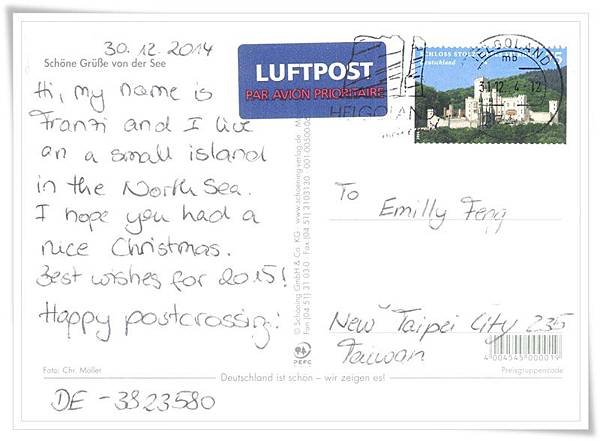 30.12.2014
Schöne Grüße von der See
Hi, my name is
Franzi and I live
on a small island
in the North Sea.
I hope you had a
nice Christmas.
Best wishes for 2015!
Happy postcrossing!
Foto: Chr. Möller
DE - 3823580
Deutschland ist schön – wir zeigen es!
© Schöning GmbH & Co. KG · www.schoening-verlag.de
Fon (04 51) 31 03 0 · Fax (04 51) 3103120
PEFC
LUFTPOST
PAR AVION PRIORITAIRE
HELGOLAND
HELGOLAND
mb
31.12.
SCHLOSS
Deutschland
To
Emilly Feng
New Taipei City 235
Taiwan
4 004545 000019
Preisgruppencode